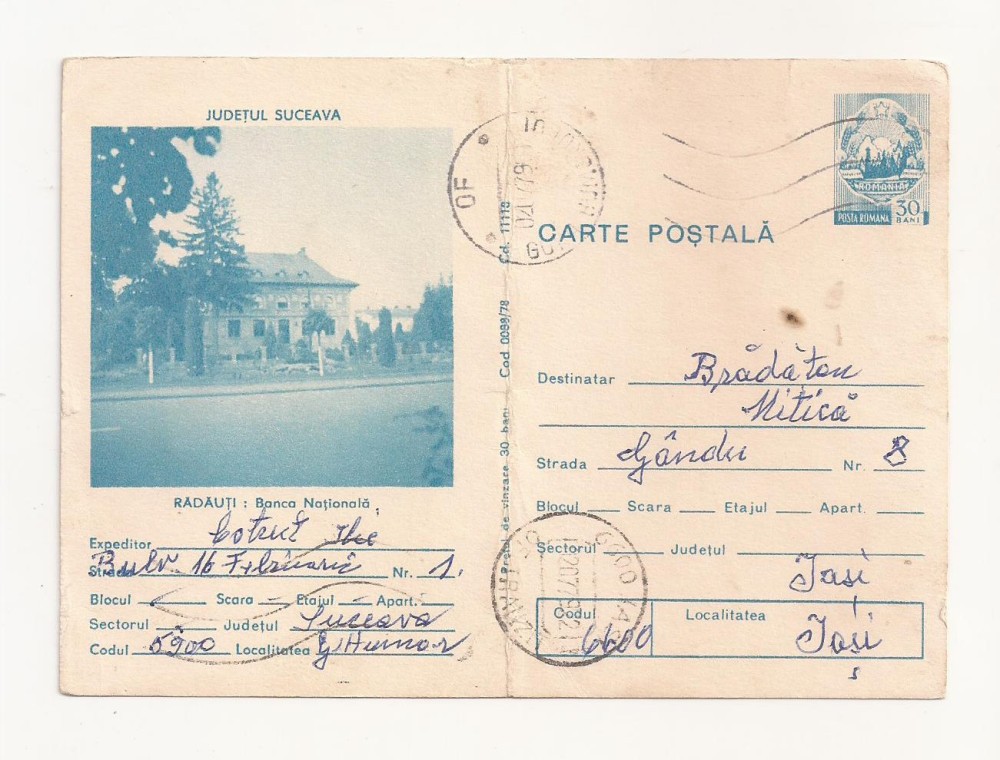 JUDEȚUL SUCEAVA
RĂDĂUȚI : Banca Națională
Expeditor Cotruț Ilie
Strada Bulv. 16 Februarie Nr. 1.
Blocul — Scara — Etajul — Apart. —
Sectorul — Județul Suceava
Codul 5900 Localitatea G Humor
Prețul de vînzare 30 bani Cod 0088/78 Cd. 11118
OF
ROMANIA
POSTA ROMANA 30 BANI
CARTE POȘTALĂ
Destinatar Brădățan
Mitică
Strada Gându Nr. 8
Blocul Scara Etajul Apart.
Sectorul Județul
Iași
Codul 6600 Localitatea Iași
6600 IAȘI